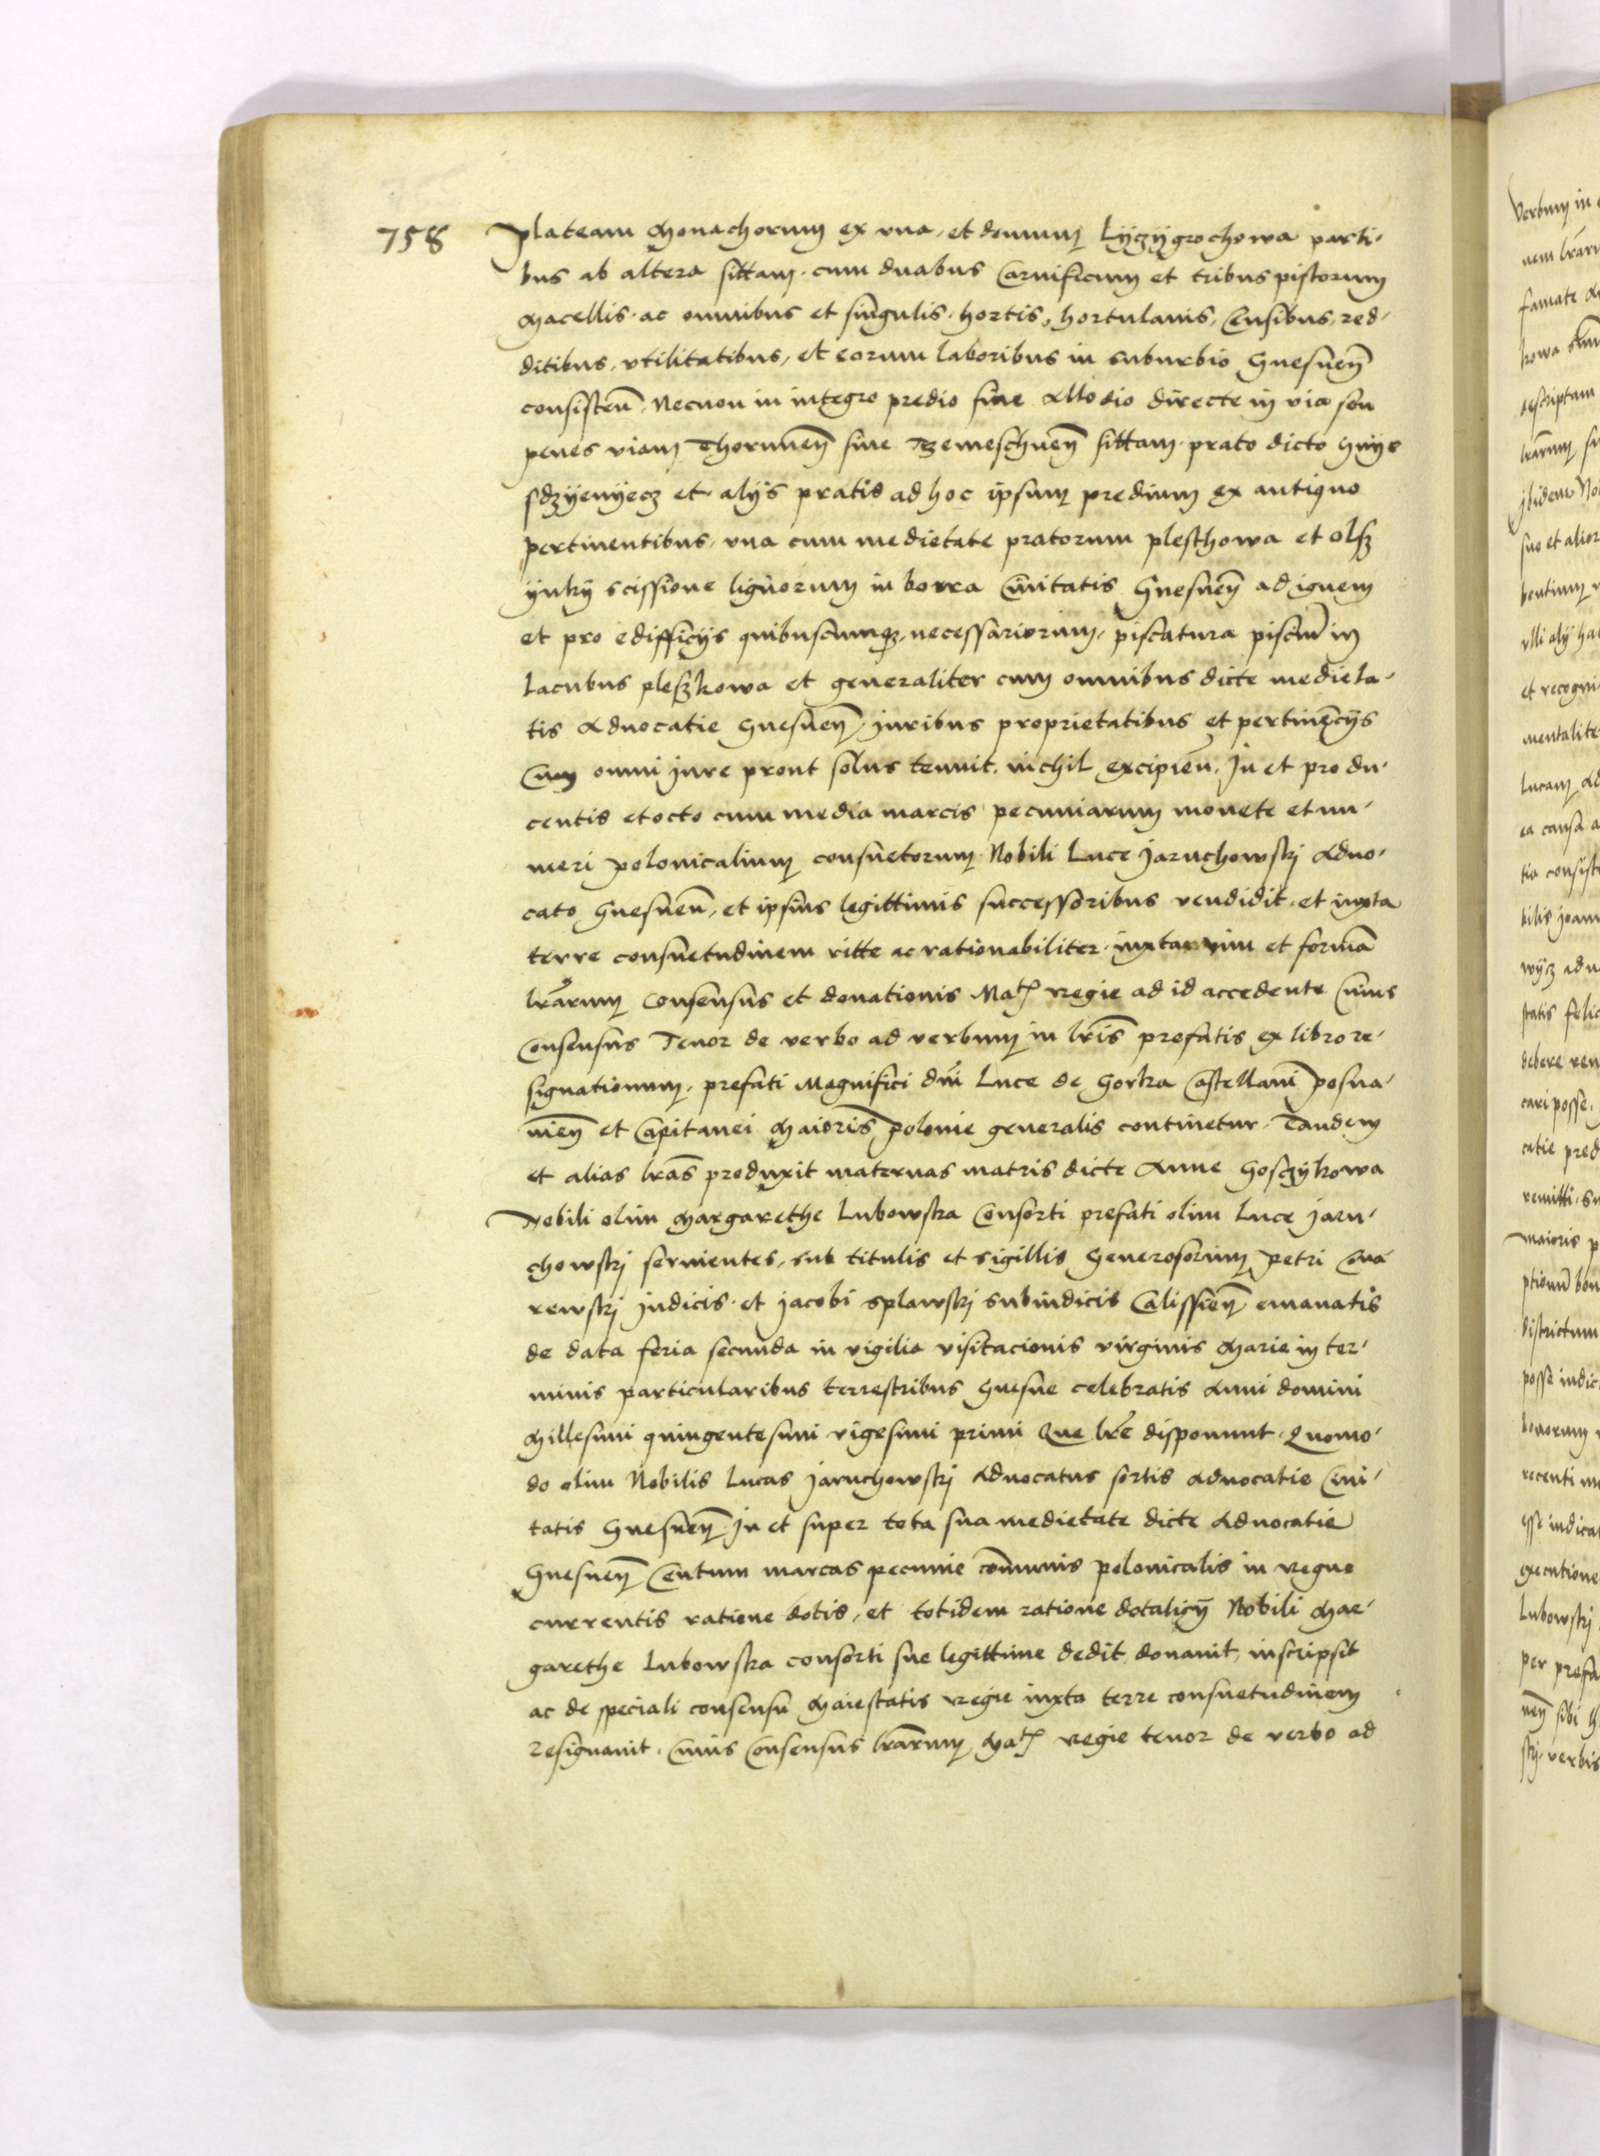 758
plateam Monachorum ex vna, et domum Lyczygrochowa parti-
bus ab altera sittam, cum duabus Carnificum et tribus pistorum
Macellis, ac omnibus et singulis, hortis, hortulanis, Censibus, red-
ditibus, vtilitatibus, et eorum laboribus in suburbio Gnesneñ
consisteñ, Necnon in integro predio siue Allodio directe in via seu
penes viam Thoruneñ siue Tzemeschneñ sittam, prato dicto Gnys
sdzyenyecz et alys pratis ad hoc ipsum predium ex antiquo
pertinentibus, vna cum medietate pratorum pleschowa et olsz
ynky scissione lignorum in borra Ciuitatis Gnesneñ ad ignem
et pro edifficys quibuscumqz necessariorum, piscatura pisciũ in
Lacubus pleszkowa et generaliter cum omnibus dicte medieta-
tis Aduocatie Gnesneñ Juribus proprietatibus et pertinẽcys
Cum omni jure prout solus tenuit, nichil excipieñ, In et pro du-
centis et octo cum media marcis pecuniarum monete et nu-
meri polonicalium consuetorum Nobili Luce Jaruchowskj Aduo-
cato Gnesneñ, et ipsius legittimis successoribus vendidit, et iuxta
terre consuetudinem ritte ac rationabiliter iuxta vim et formã
lrarum Consensus et donationis Matis Regie ad id accedente Cuius
Consensus Tenor de verbo ad verbum in lris prefatis ex libro re-
signationum, prefati Magnifici dni Luce de Gorka Castellani posna-
nieñ et Capitanei Maioris polonie generalis continetur. Tandem
et alias lras produxit maternas matris dicte Anne Gosczykowa
Nobili olim Margarethe Lubowska Consorti prefati olim Luce Jaru-
chowskj seruientes, sub titulis et sigillis Generosorum petri
rewskj Judicis, et Jacobi Splawskj Subiudicis Calissieñ emanatis
de data feria secunda in vigilia visitacionis virginis Marie in ter-
minis particularibus terrestribus Gnesne celebratis Anni domini
Millesimi quingentesimi vigesimi primi Que lre disponunt, Quomo-
do olim Nobilis Lucas Jaruchowskj Aduocatus sortis Aduocatie Ciui-
tatis Gnesneñ In et super tota sua medietate dicte Aduocatie
Gnesneñ Centum marcas pecunie cõmunis polonicalis in Regno
currentis ratione dotis, et totidem ratione dotalicy Nobili Mar-
garethe Lubowska consorti sue legittime dedit donauit, inscripsit
ac de speciali consensu Maiestatis Regie iuxta terre consuetudinem
Resignauit, Cuius Consensus lrarum Matis Regie tenor de verbo ad